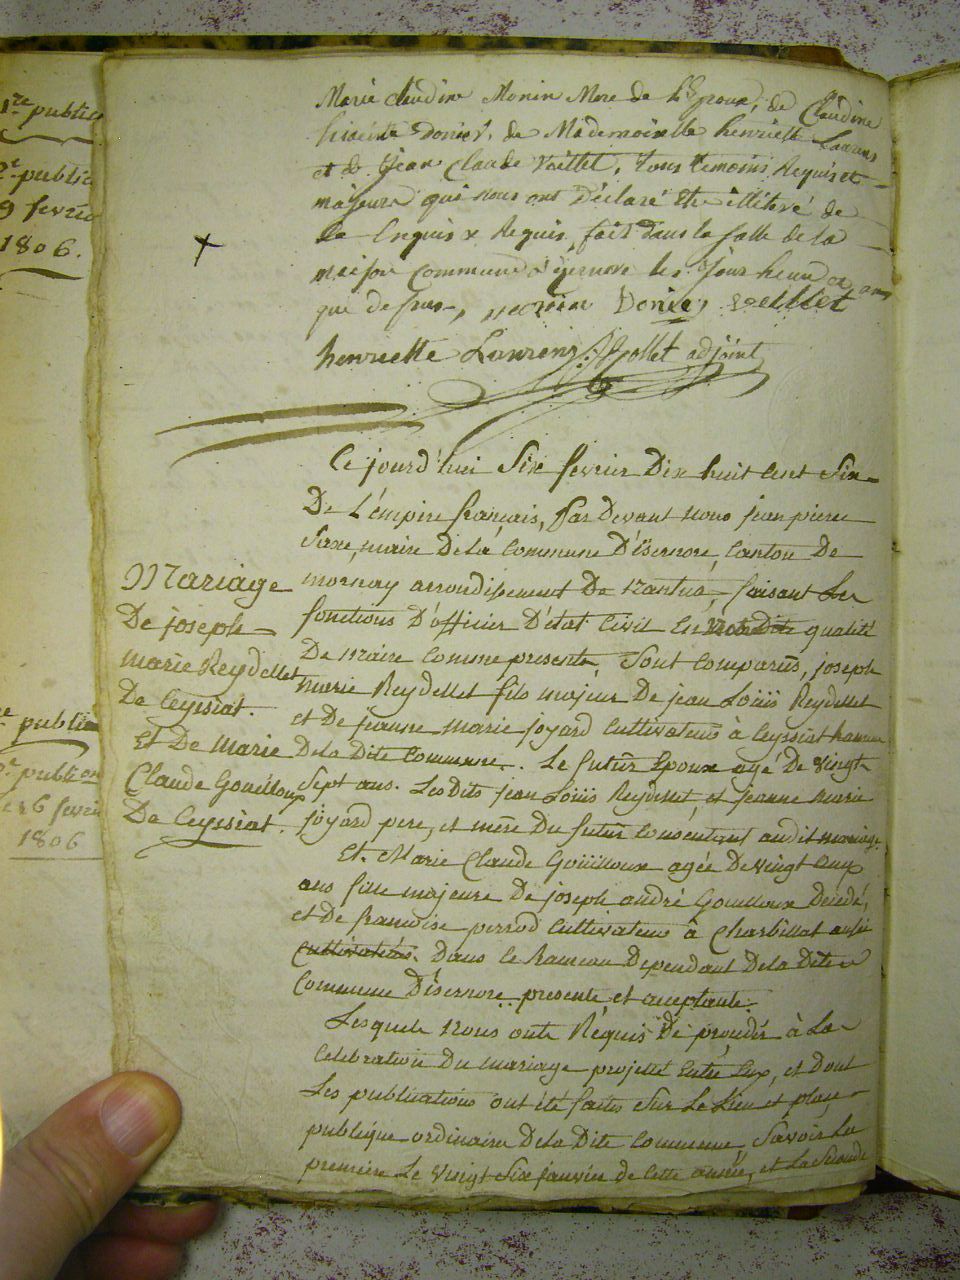 1re public
2e public
9 fevrie
1806.
publica
2e publion
6 fevri
1806
Marie Claudine Monin Mere de l'Epoux, de Claudine
de Mademoiselle henriette Laurens
et de Jean Claude Vuillet, tous temoins Requis et
majeurs qui nous ont Déclaré Etre illitéré de
ce Enquis & Requis, fait dans la salle de la
maison Commune d'Yzernore les Jour heure et an
que dessus, Donier veillet
henriette Laurens Jollet adjoint
Mariage
De joseph
marie Reydellet
De Ceyssiat.
Et De Marie
Claude Gouilloux
De Ceyssiat.
Ce jourd'hui Six fevrier Dix huit cent Six
De L'émpire francais, par Devant nous jean pierre
maire De la Commune D'Isernore, Canton De
mornay arrondissement De Nantua, faisant Les
fonctions D'officier D'état Civil En qualité
De Maire Comme presente, Sont Comparus, joseph
marie Reydellet fils majeur De jean Loüis Reydellet
et De jeanne marie joyard Cultivateurs à Ceyssiat hameau
De la Dite Commune. Le futur Epoux agé De vingt
Sept ans. Les Dits jean Loüis Reydellet et jeanne marie
joyard pere, et mère Du futur Consentent audit mariage
Et Marie Claude Goüilloux agée De vingt
ans fille majeure De joseph andré Gouilloux Décédé,
et De francoise perrod Cultivateurs à Charbillat
Cultivateurs. Dans le hameau Dependant De la Dite
Commune D'isernore presente et aceptante.
Lesquels Nous onts Réquis De proceder à La
Celebration Du mariage projetté Entre Eux, et Dont
Les publications ont été faites Sur Le Lieu et place
publique ordinaire De la Dite Commune, Savoir La
premiere Le vingt Six janvier de cette année, et La Seconde